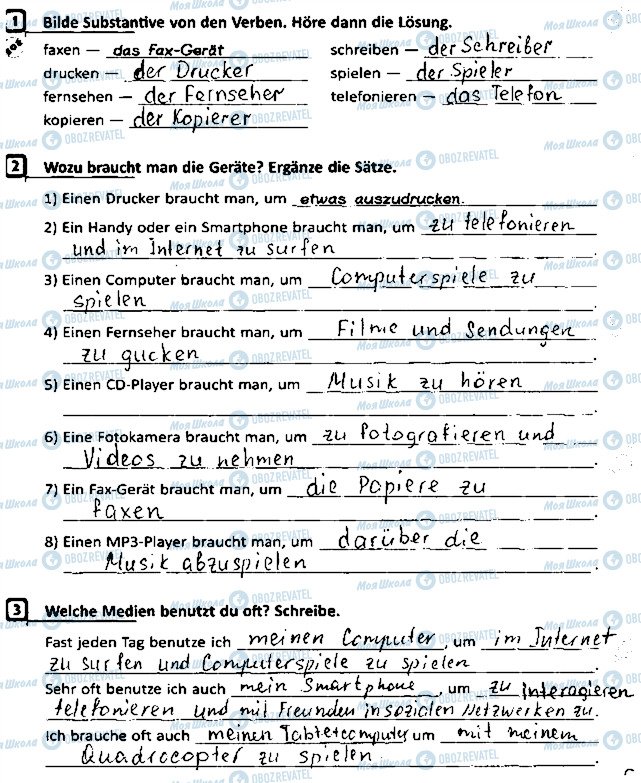 1 Bilde Substantive von den Verben. Höre dann die Lösung.
faxen — das Fax-Gerät schreiben — der Schreiber
drucken — der Drucker spielen — der Spieler
fernsehen — der Fernseher telefonieren — das Telefon
kopieren — der Kopierer
2 Wozu braucht man die Geräte? Ergänze die Sätze.
1) Einen Drucker braucht man, um etwas auszudrucken.
2) Ein Handy oder ein Smartphone braucht man, um zu telefonieren
und im Internet zu surfen.
3) Einen Computer braucht man, um Computerspiele zu
spielen.
4) Einen Fernseher braucht man, um Filme und Sendungen
zu gucken.
5) Einen CD-Player braucht man, um Musik zu hören
.
6) Eine Fotokamera braucht man, um zu fotografieren und
Videos zu nehmen.
7) Ein Fax-Gerät braucht man, um die Papiere zu
faxen.
8) Einen MP3-Player braucht man, um darüber die
Musik abzuspielen.
3 Welche Medien benutzt du oft? Schreibe.
Fast jeden Tag benutze ich meinen Computer, um im Internet
zu surfen und Computerspiele zu spielen.
Sehr oft benutze ich auch mein Smartphone, um zu interagieren
telefonieren und mit Freunden in sozialen Netzwerken zu.
Ich brauche oft auch meinen Tabletcomputer um mit meinem
Quadrocopter zu spielen.
Моя Школа OBOZREVATEL